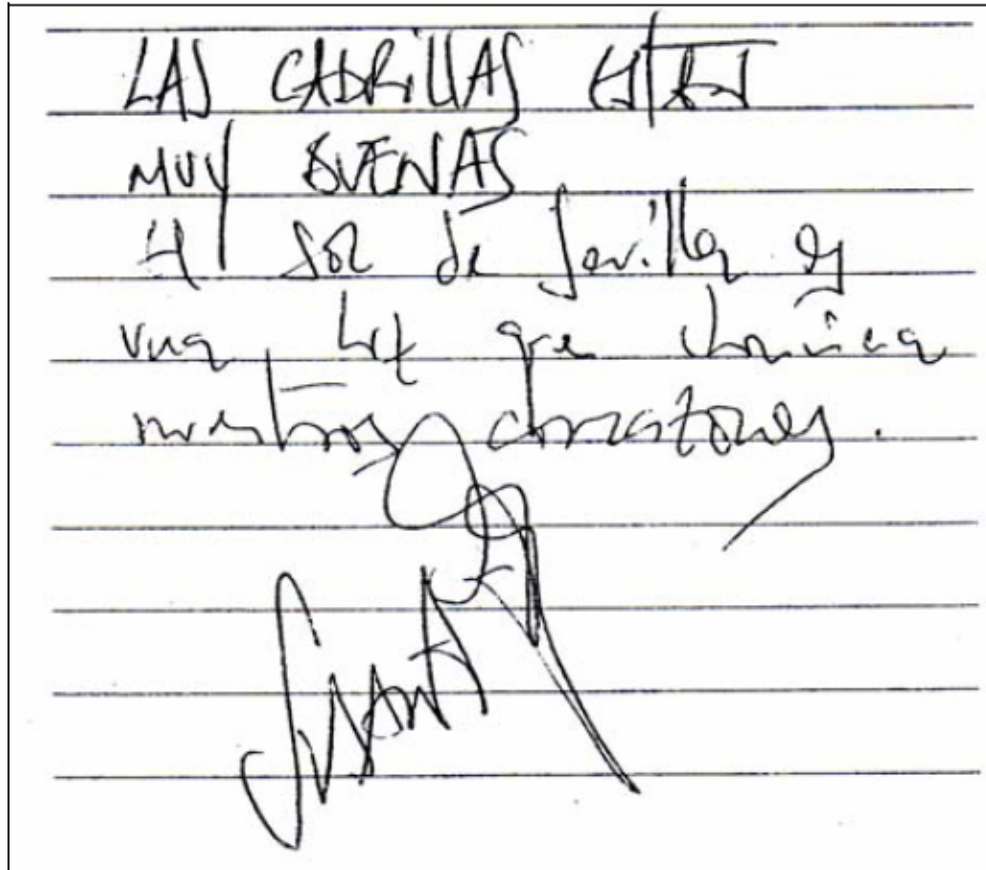 LAS CADRILLAS ESTAN
MUY BUENAS
El sol de Sevilla es
una luz que ilumina
nuestros corazones.